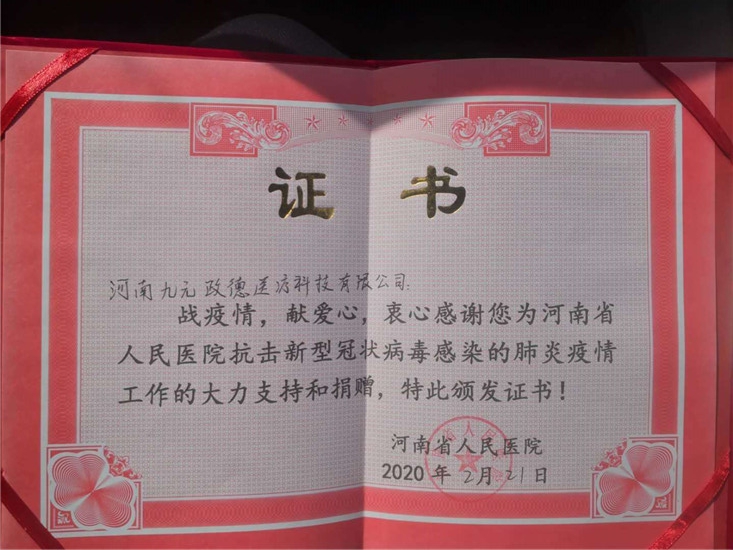 证 书
河南九元政德医疗科技有限公司:
战疫情，献爱心，衷心感谢您为河南省
人民医院抗击新型冠状病毒感染的肺炎疫情
工作的大力支持和捐赠，特此颁发证书！
河南省人民医院
2020 年 2月 21日